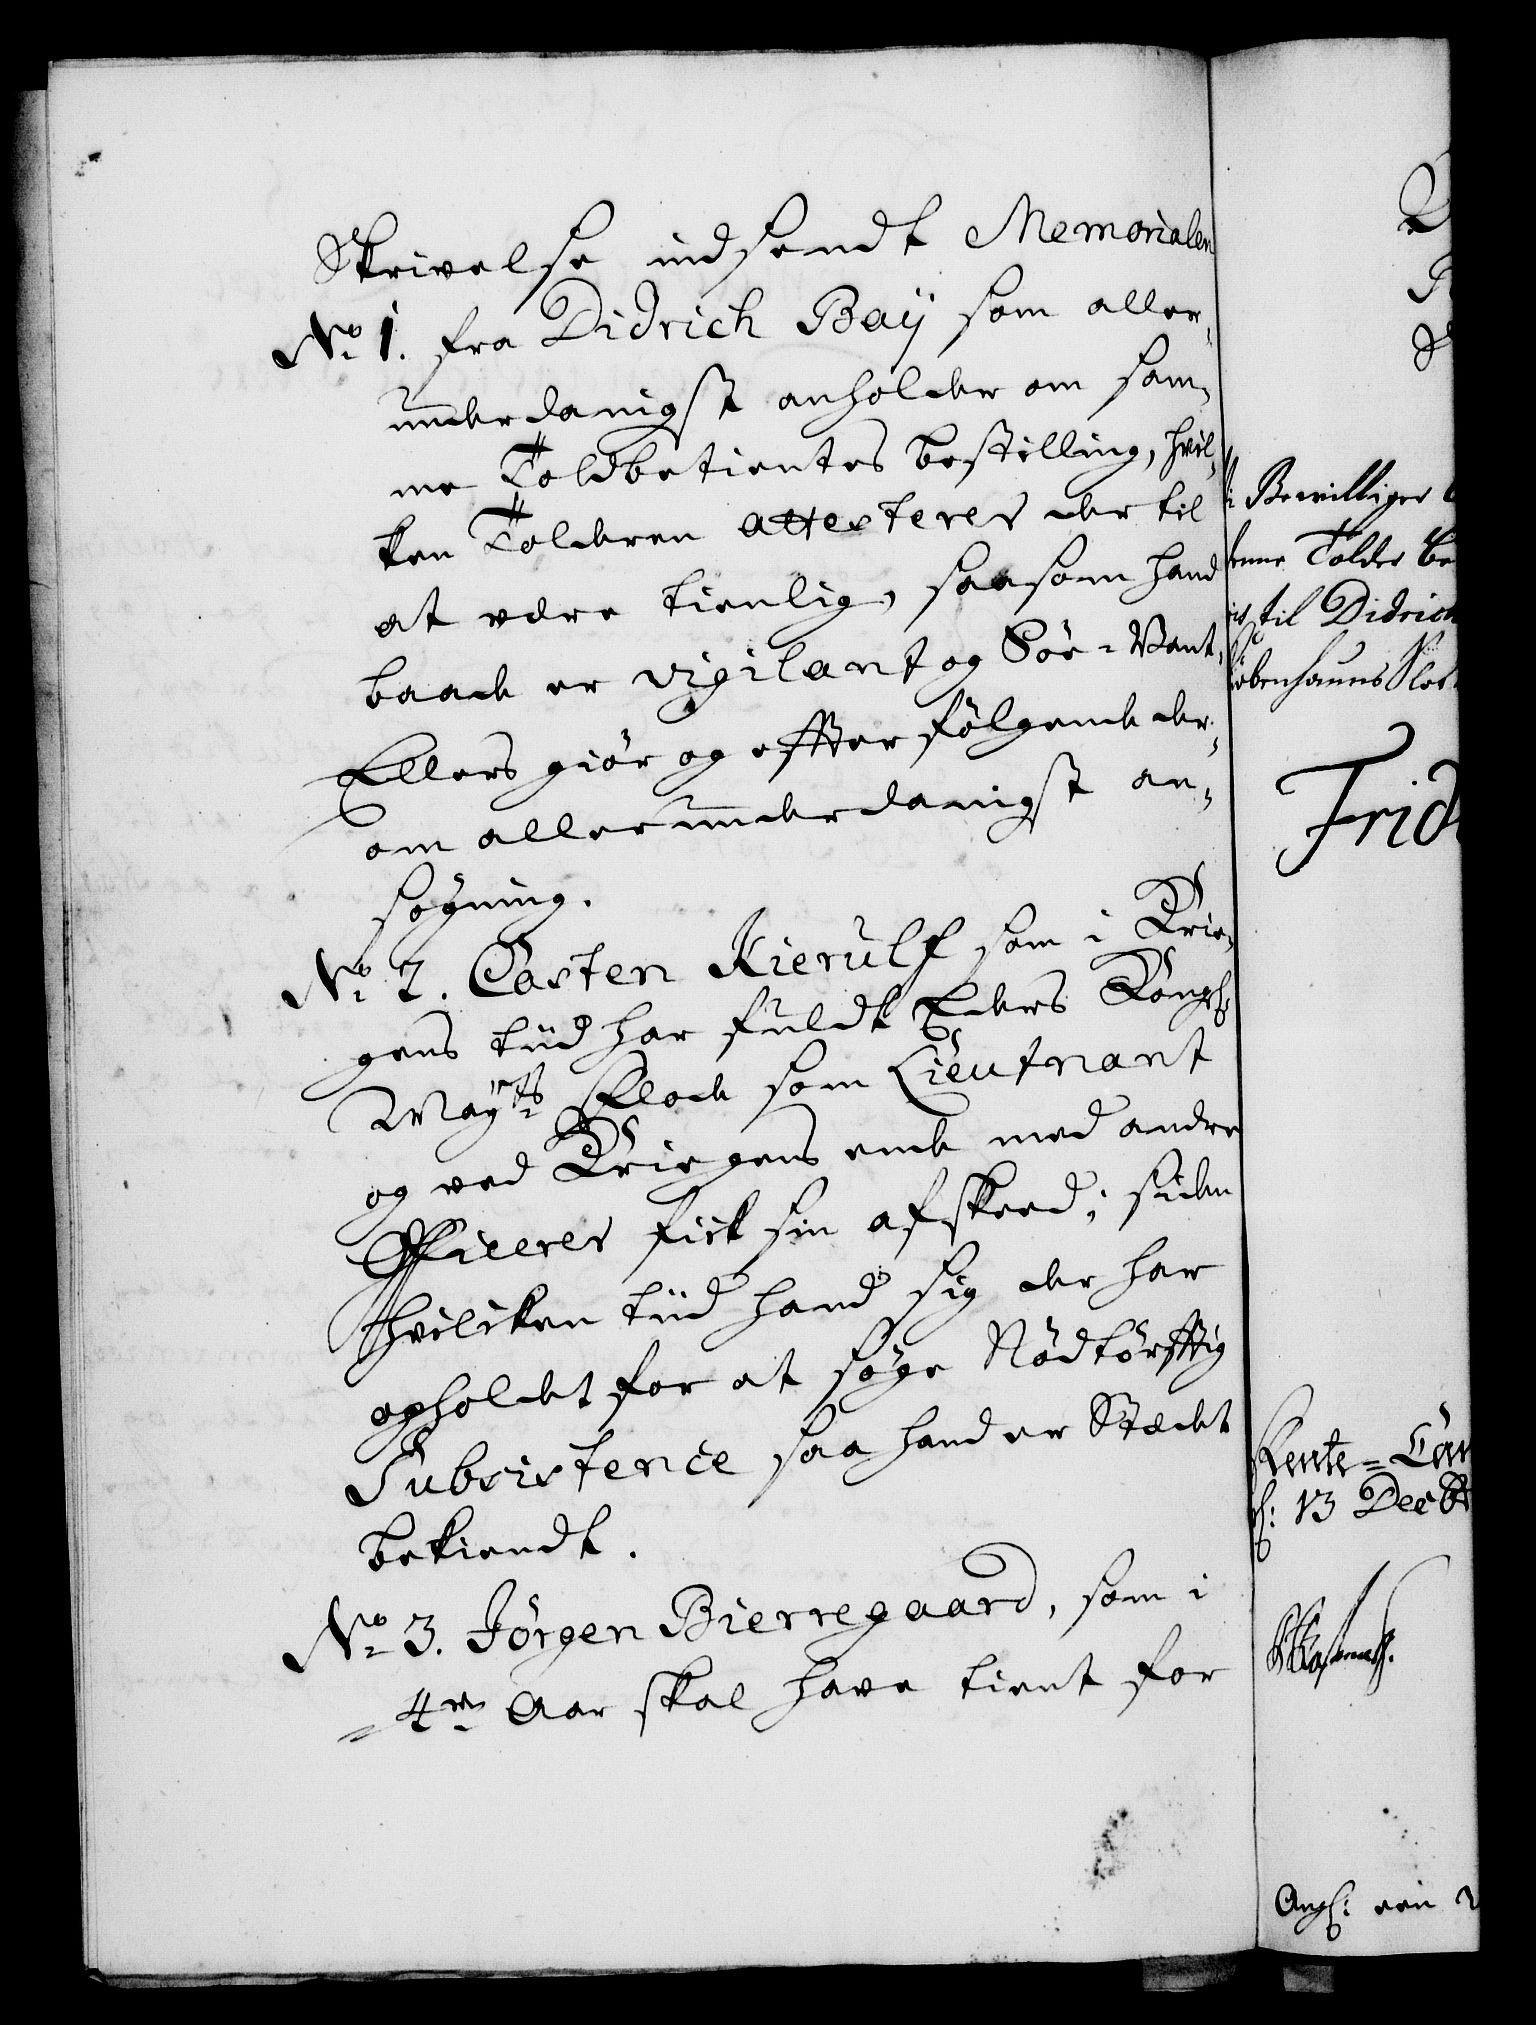 Skrivelse indsendt Memorialen
No 1. fra Didrich Baÿ som aller-
underdanigst anholder om sam-
me Toldbetientes bestilling, hvil-
ken Tolderen attesterer der til
at være tienlig, saasom hand
baade er vigilant og Söe-Vant,
Ellers giör og effterfölgende der-
om allerunderdanigst an-
søgning.
No 2. Casten Kierulf som i Krie-
gens tiid har fuldt Eders Kongl:
Mayts Flode som Lieutnant
og ved Kriegens ende med andre
Officerer fick sin afskeed; siden
hvilcken tiid hand sig der har
opholdet for at søge Nödtörfftig
Subsistence saa hand er Stædet
bekiendt.
No 3. Jörgen Bierregaard, som i
4re Aar skal have tient for
Bewilliger
Tolder
til Didrich
Kiøbenhauns Slot
Frid
Rente-Cam
13 Decbr